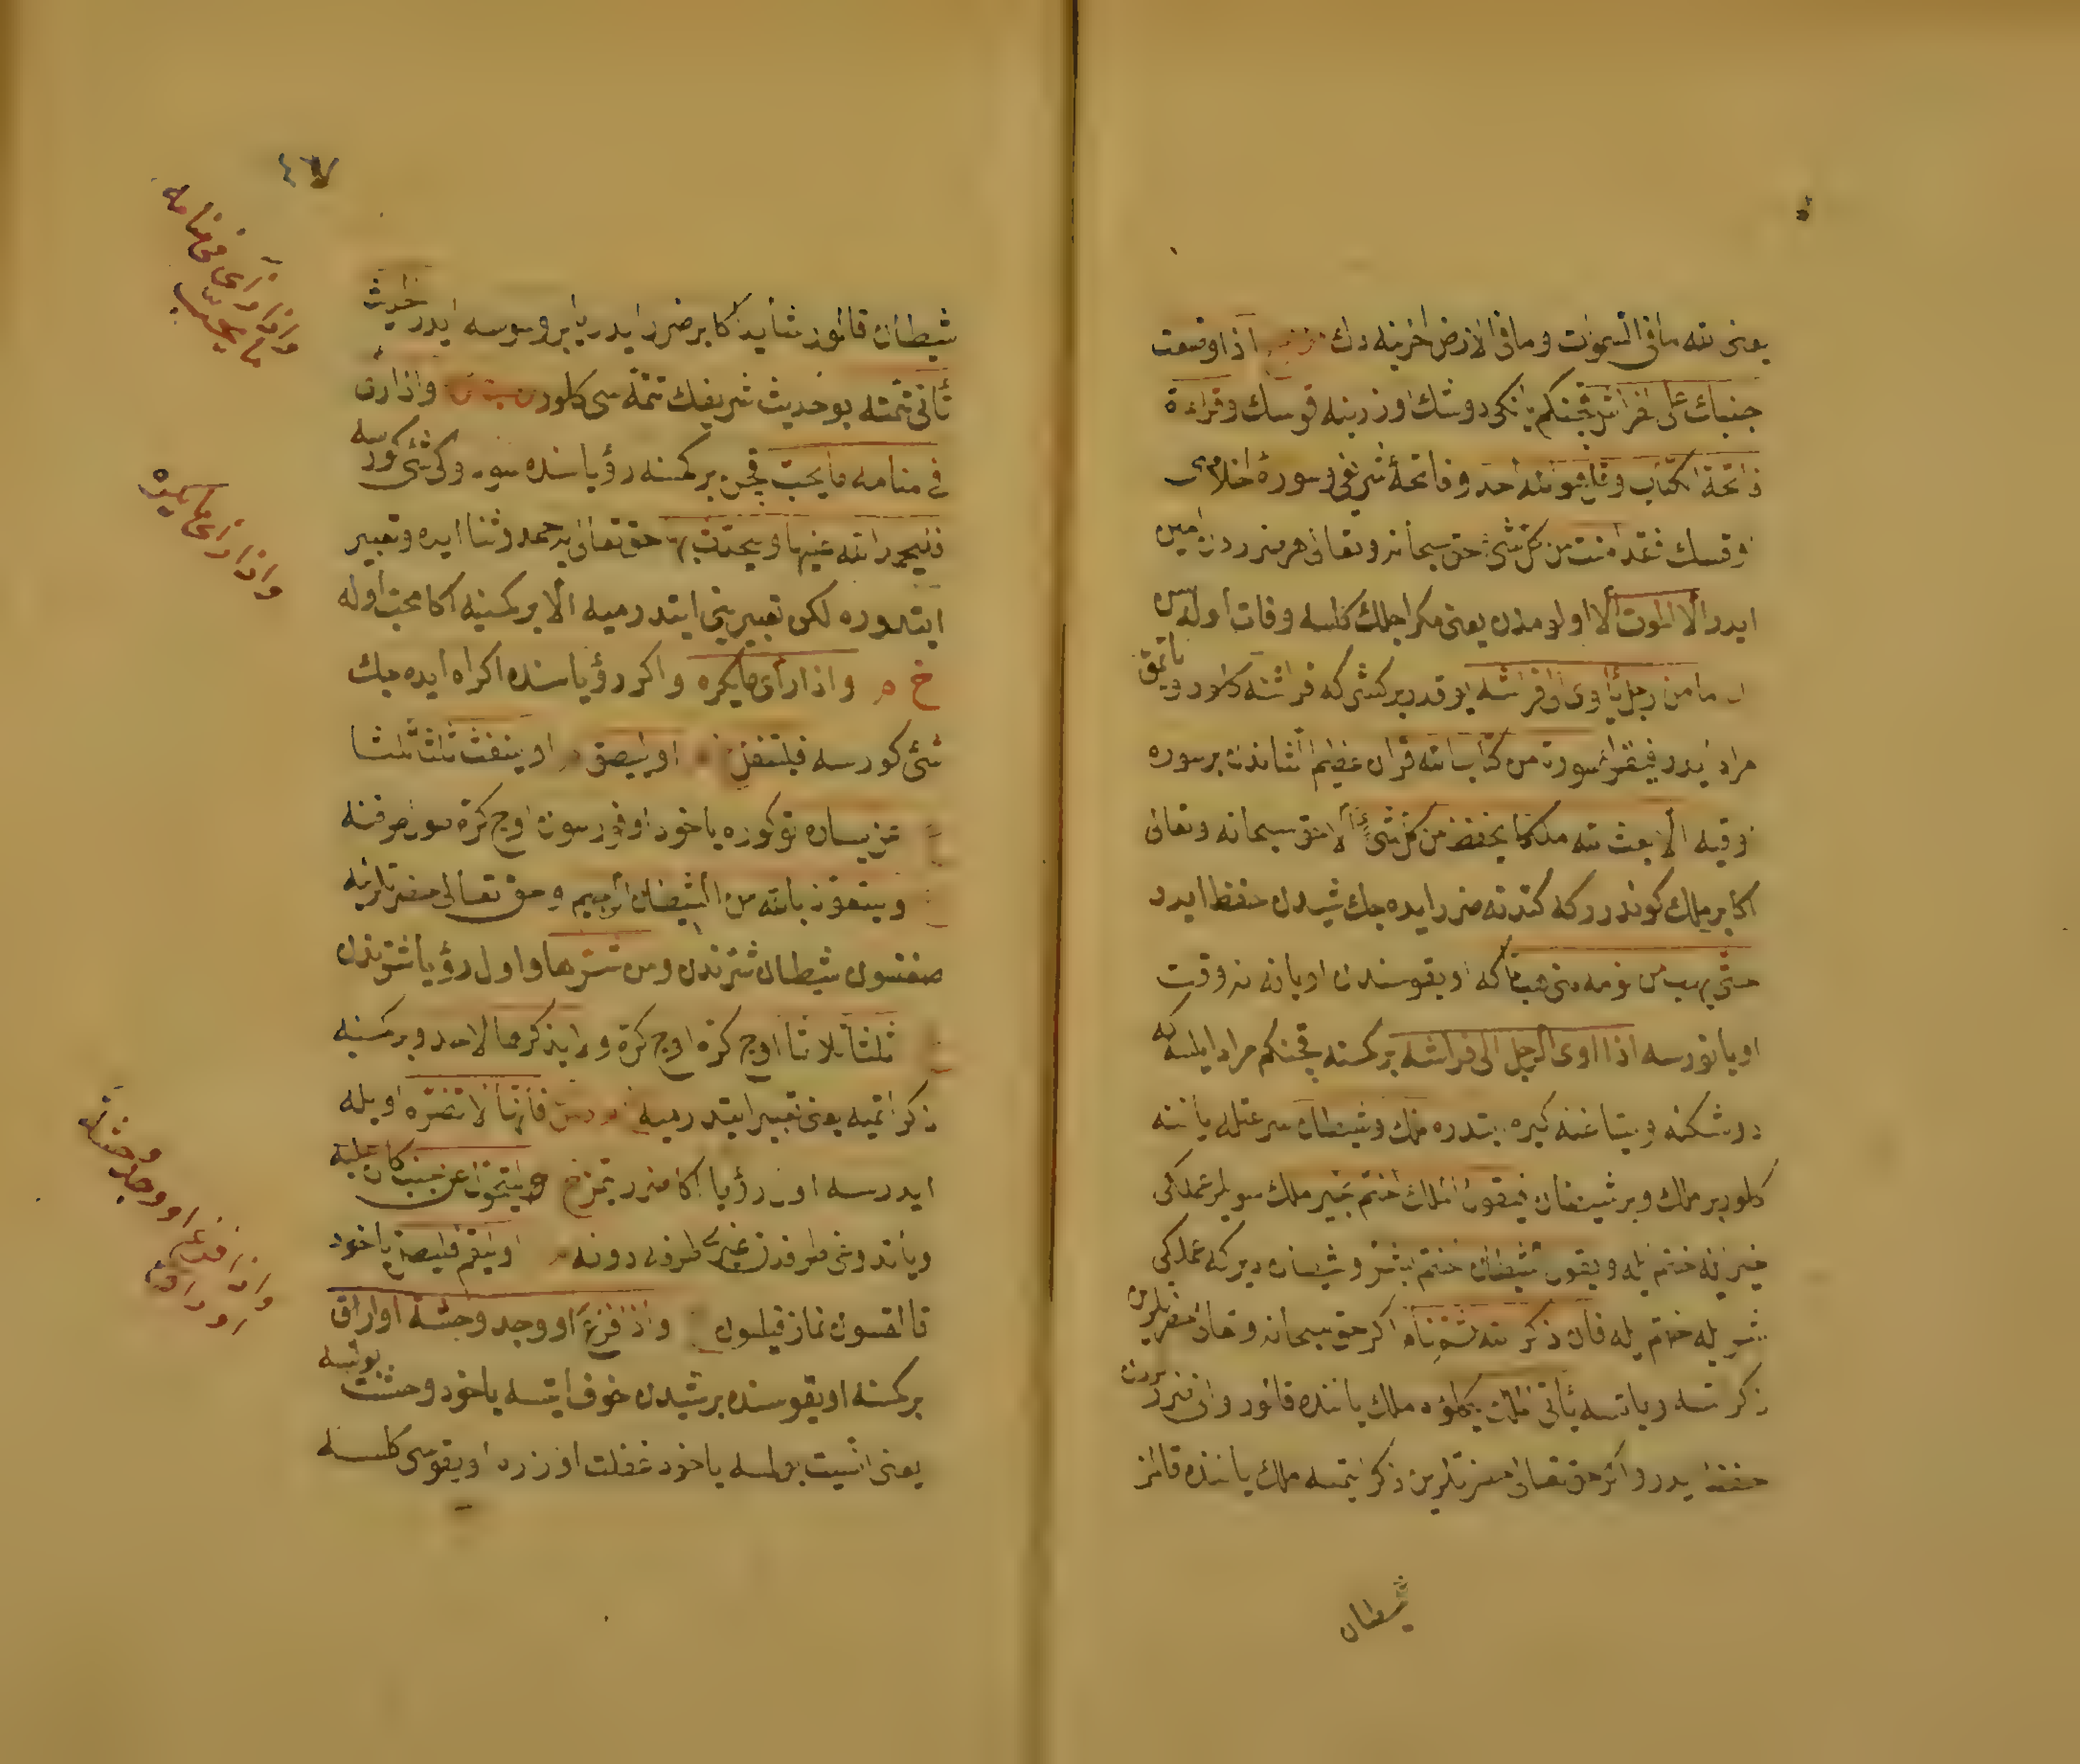 یعنی لله مافی السموات ومافی الارض اخرینه دك اذا وضعت
جنبك علی الفراش قچنکم یانکی دوشك اوزرینه قوسك وقراءة
فاتحة الكتاب وقل هو الله احد وفاتحهٔ شریفی وسورهٔ اخلاصی
اوقسك فقد امنت من كل شئ حق سبحانه وتعالی هر ضرردن امین
ایدر الا الموت الا اولومدن یعنی مکر اجلك کلسه وفات اولورسن
ما من رجل یأوی الی فراشه یوقدر بر کشی که فراشنه کلور و یاتمق
مراد ایدر فیقرأ سورة من كتاب الله قران عظیم الشاندن بر سوره
اوقیه الا بعث الله ملكا يحفظه من كل شئ الا حق سبحانه وتعالی
اکا بر ملك کوندرر که کندنه ضرر ایده جك شیدن حفظ ایدر
حتی یهب من نومه متی هب تاکه اویقوسندن اویانه نه وقت
اویانورسه اذا اوی الرجل الی فراشه بر کمسنه قچنکم مراد ایلسه که
دوشکنه ویتاغنه کیره ابتدره ملك وشیطان سرعتله یاننه
کلور بر ملك وبر شیطان فیقول الملك اختم بخیر ملك سویلر عملکی
خیر ایله ختم ایله ویقول الشیطان اختم بشر وشیطان دیر که عملکی
شر ایله ختم ایله فان ذكر الله اکر حق سبحانه وتعالی حضرتلرین
ذکر ایتسه ویاتسه بات الملك یکلؤه ملك یاننده قالور وانی ضرردن
حفظ ایدر واکر حق تعالی حضرتلرین ذکر ایتمسه ملك یاننده قالمز
شیطان
٤٧
شیطان قالور شاید اکا بر ضرر ایدر یا بر وسوسه ایدر حدیث
ثانی تتمه بو حدیث شریفك تتمه سی کلور واذا رای
فی منامه ما یحب قچن بر کمسنه رؤیاسنده سودوکی شئی کورسه
فلیحمد الله علیها ویحدث بها حق تعالی یه حمد وثنا ایده وتعبیر
ایتدوره لکن تعبیرینی ایتدرمیه الا بر کمسنیه اکا محب اوله
خ م واذا رأی ما یکره واکر رؤیاسنده اکراه ایده جك
شئی کورسه فلیتفل او لیبصق او ینفث ثلاثا
ویتعوذ بالله من الشیطان الرجیم وحق تعالی حضرتلرینه
صغنسون شیطان شرندن ومن شرها واول رؤیا شرندن
ثلثا ثلاثا اوج کرة اوج کرة ولا یذکرها لاحد وبر کمسنیه
ذکر اتمیه یعنی تعبیر ایتدرمیه فانها لا تضره اویله
ایدرسه اول رؤیا اکا ضرر اتمز خ م ولیتحول عن جنبه الذی کان علیه
ویاتدوغی طرفدن غیری طرفه دونه او لیقم فلیصل یاخود
قالقسون نماز قیلسون واذا فزع او وجد وحشة او ارق
بر کمسنه اویقوسنده بر شیدن خوف ایتسه یاخود وحشت بولسه
یعنی انسیت بولمسه یاخود غفلت اوزره اویقوسی کلمسه
واذا رای فی منامه ما یحب
واذا رای ما یکره
واذا فزع او وجد وحشة او ارق